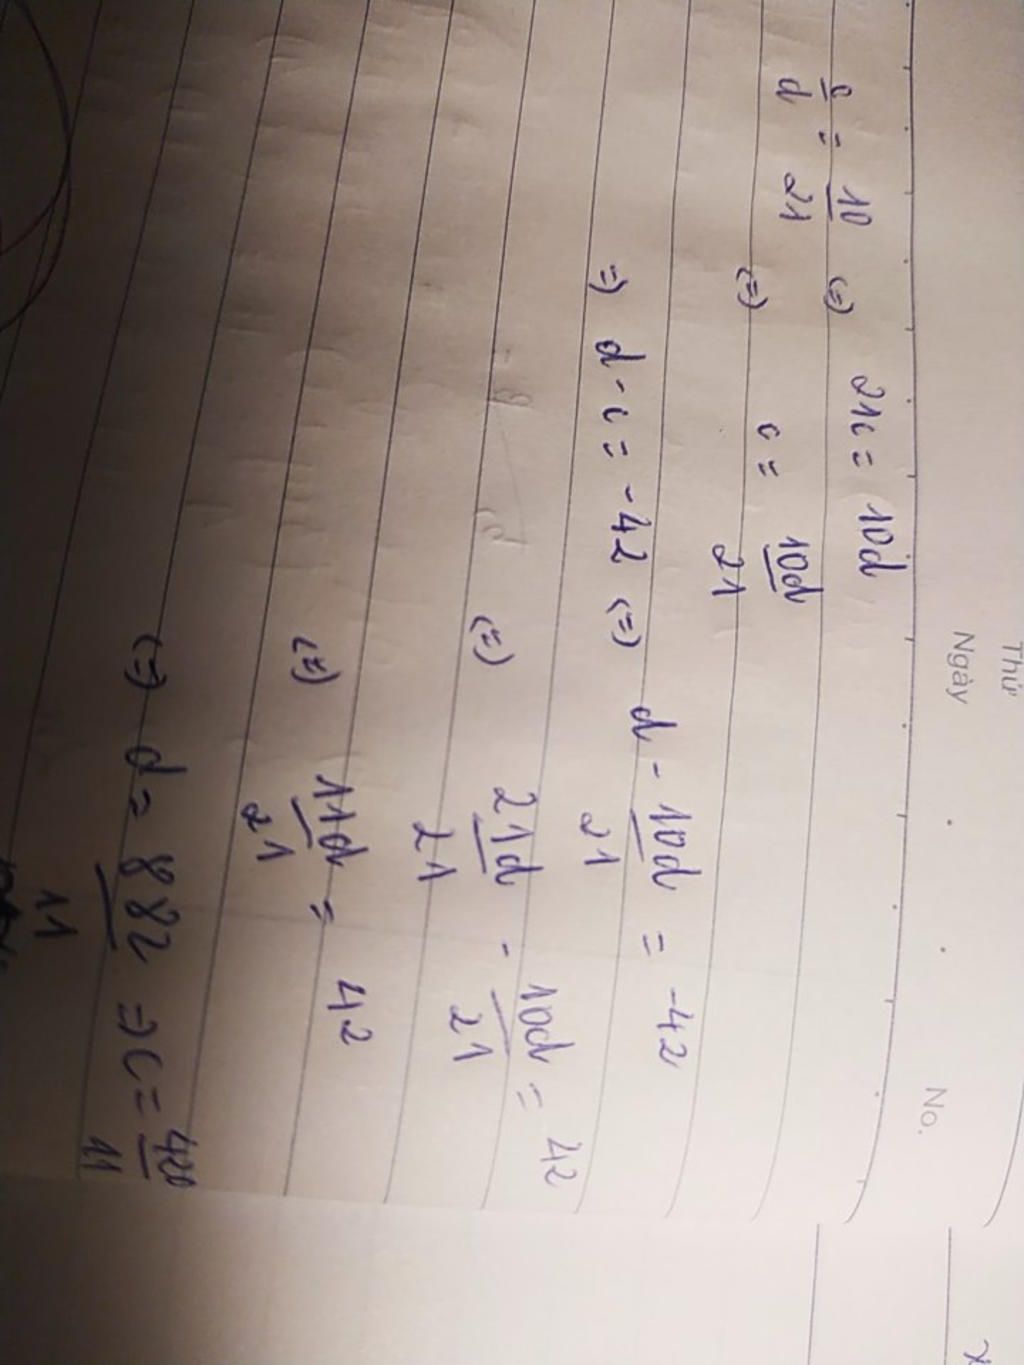 Thứ
Ngày No.
c/d = 10/21 (=) 21c = 10d
(=) c = 10d/21
=) d - c = -42 (=) d - 10d/21 = -42
(=) 21d/21 - 10d/21 = 42
(=) 11d/21 = 42
(=) d = 882/11 => c = 420/11